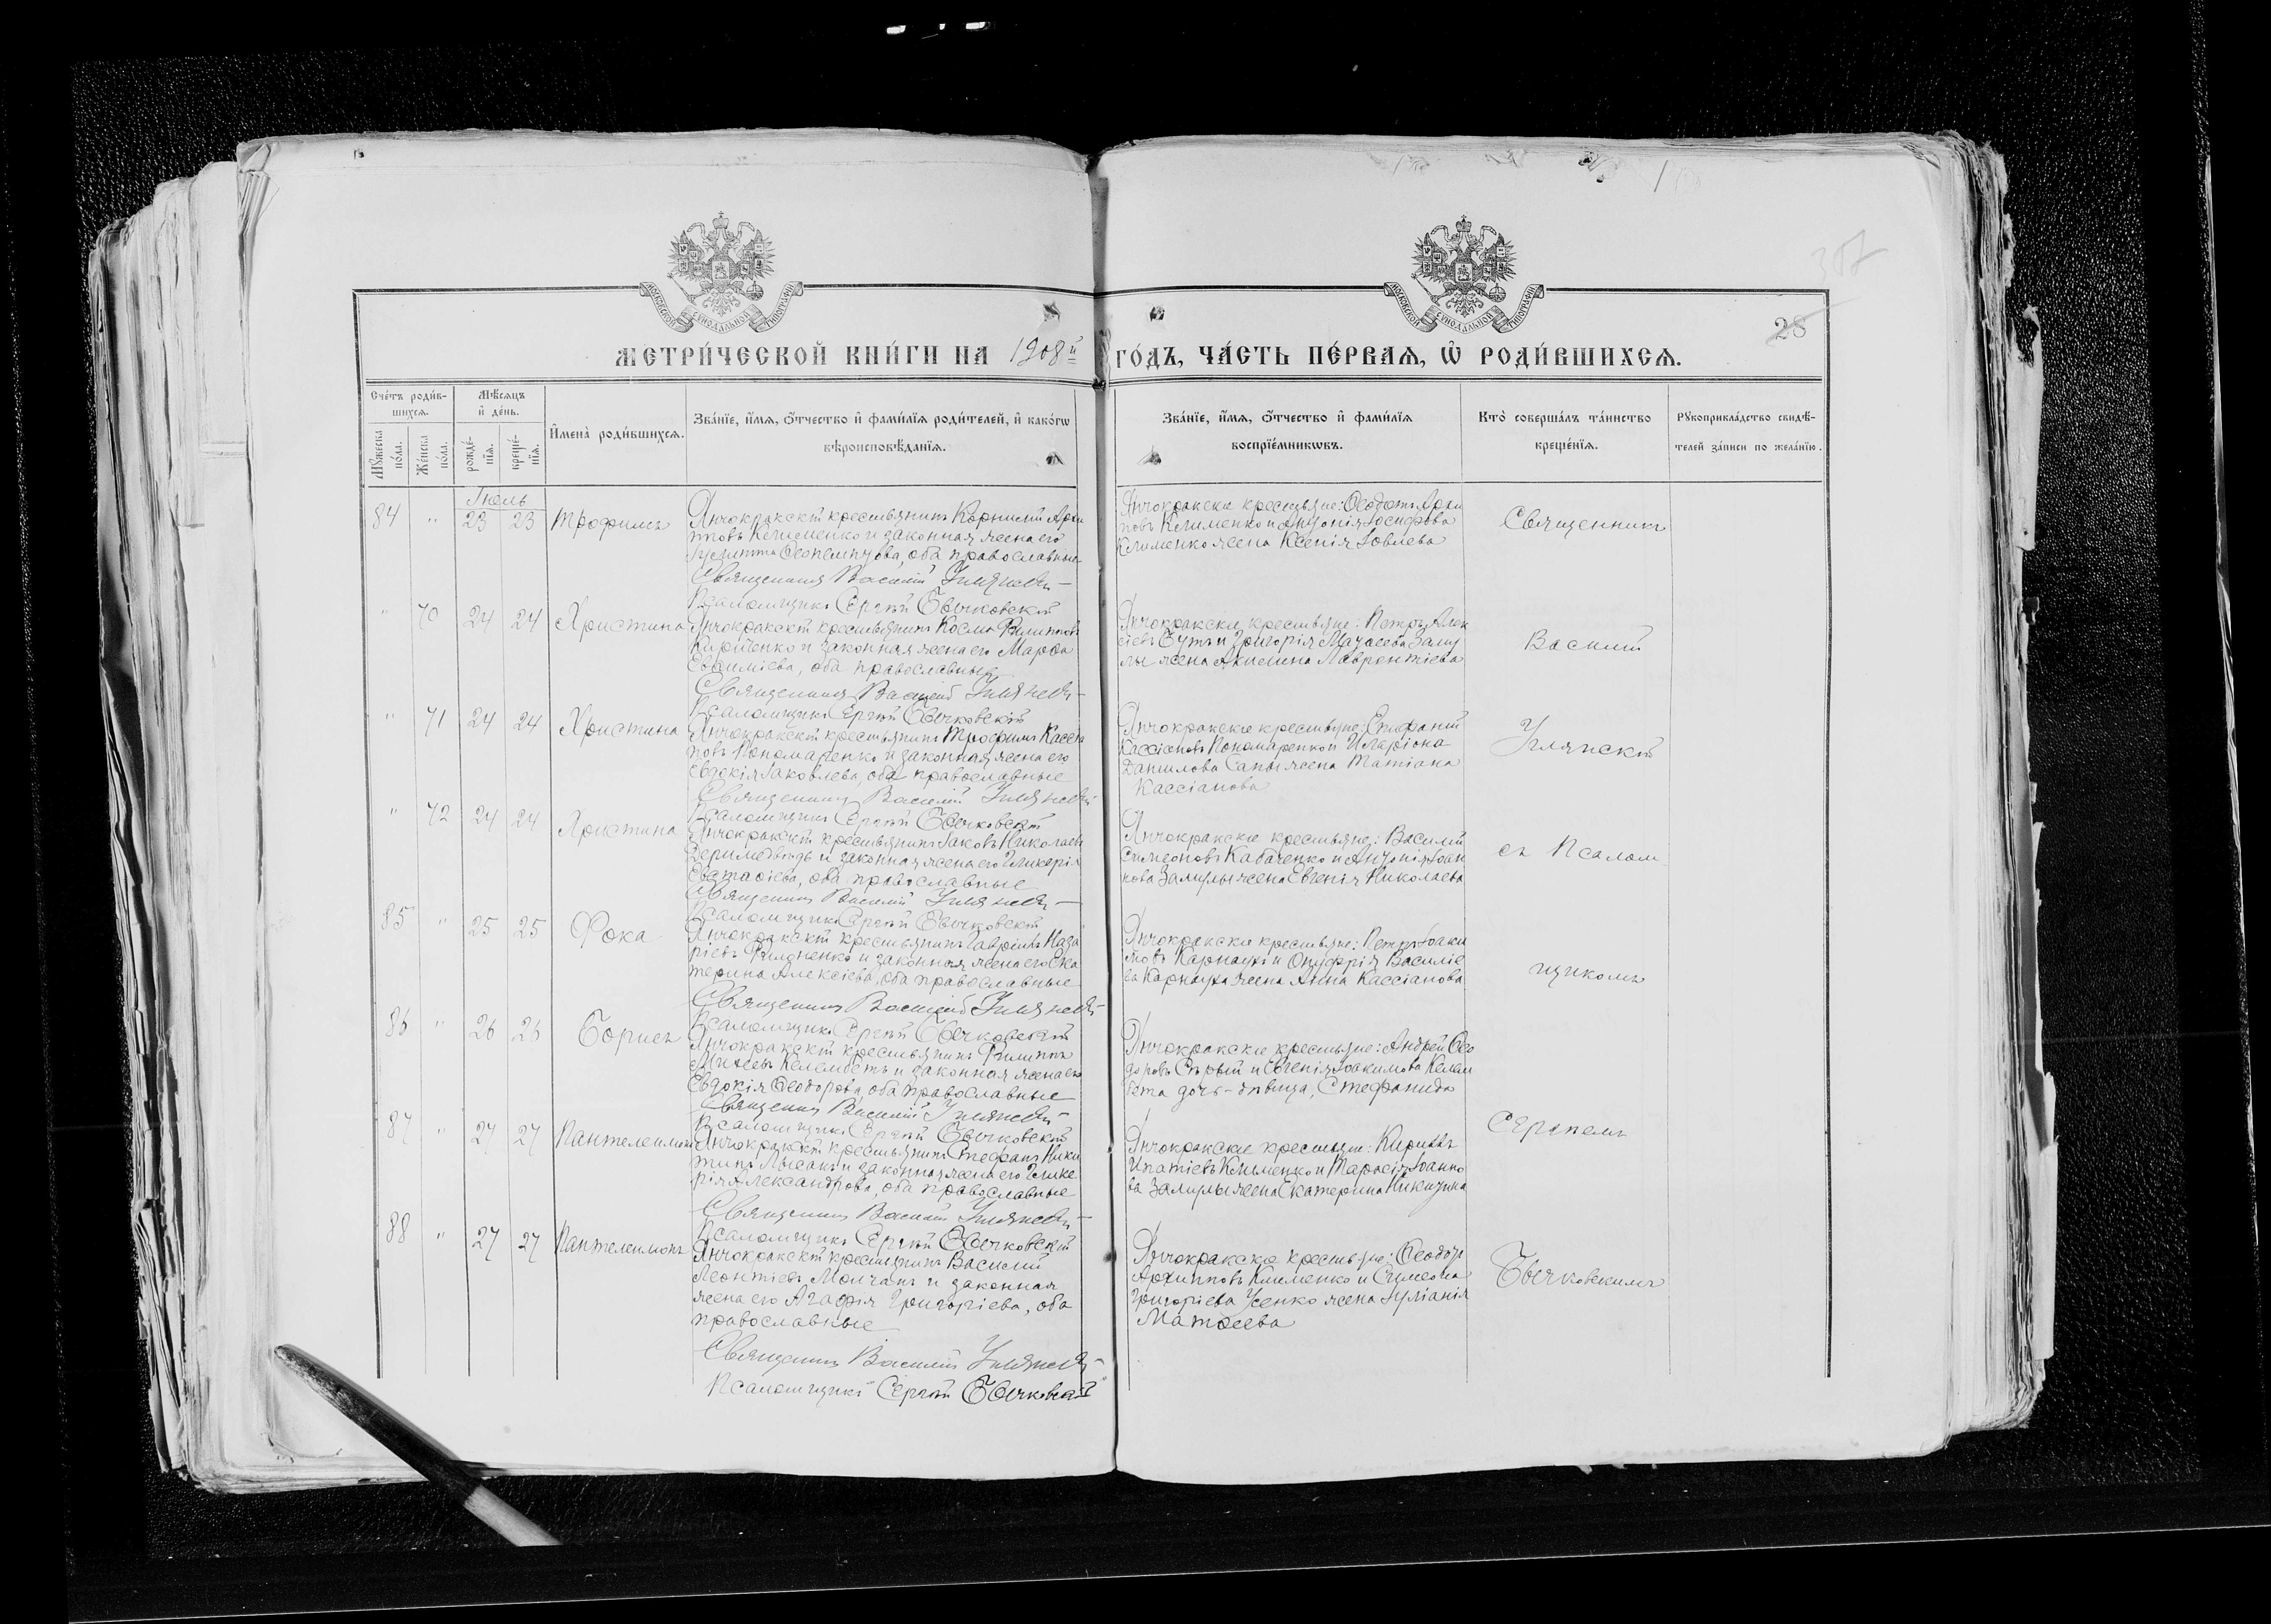 МОСКОВСКОЙ СѴНОДАЛЬНОЙ ТИПОГРАФІИ
МОСКОВСКОЙ СѴНОДАЛЬНОЙ ТИПОГРАФІИ
28
МЕТРИ́ЧЕСКОЙ КНИ́ГИ НА 1908й ГО́ДЪ, ЧА́СТЬ ПЕ́РВАЯ, Ѿ РОДИ́ВШИХСЯ.
Сче́тъ роди́в-
шихся.
Мѣ́сяцъ
и҆ де́нь.
Мꙋ́жеска по́ла.
Же́нска по́ла.
рожде́-
нїя.
креще́-
нїя.
И҆мена̀ роди́вшихся.
Зва́нїе, и҆́мя, ѻ҆́тчество и҆ фами́лїя роди́телей, и҆ како́гѡ
вѣроисповѣ́данїя.
Зва́нїе, и҆́мя, ѻ҆́тчество и҆ фами́лїя
воспрїе́мникѡвъ.
Кто̀ соверша́лъ та́инство
креще́нїя.
Рꙋкоприкла́дство свидѣ́-
телей за́писи по жела́нїю.
Іюль
84 " 23 23 Трофимъ
Янчокракскій крестьянинъ Корнилій Архи
пповъ Клименко и законная жена его
Ѳеопемптова, оба православные
Священникъ Василій Углянскій
Псаломщикъ Сергѣй Бычковскій
Янчокракскіе крестьяне: Ѳеодотъ Архи
повъ Клименко и Антонія Іосифова
Клименко жена Ксенія Іовлева
Священникъ
" 70 24 24 Христина
Янчокракскій крестьянинъ Косма Филипповъ
Кирпченко и законная жена его Марѳа
Евѳиміева, оба православные
Священникъ Василій Углянскій
Псаломщикъ Сергѣй Бычковскій
Янчокракскіе крестьяне: Петръ Алек
сіевъ Бутъ и Григорія Матѳеева Залу
лы жена Акилина Лаврентіева
Василій
" 71 24 24 Христина
Янчокракскій крестьянинъ Трофимъ Кассіа
новъ Пономаренко и законная жена его
Евдокія Іаковлева, оба православные
Священникъ Василій Углянскій
Псаломщикъ Сергѣй Бычковскій
Янчокракскіе крестьяне: Епифаній
Кассіановъ Пономаренко и Иларіона
Данилова Сапы жена Татіана
Кассіанова
Углянскій
" 72 24 24 Христина
Янчокракскій крестьянинъ Іаковъ Николаевъ
Деримедвѣдь и законная жена его Гликерія
Евстаѳіева, оба православные
Священникъ Василій Углянскій
Псаломщикъ Сергѣй Бычковскій
Янчокракскіе крестьяне: Василій
Симеоновъ Кабаченко и Антонія Іоан
нова Залулы жена Евгенія Николаева
съ Псалом-
85 " 25 25 Фока
Янчокракскій крестьянинъ Гавріилъ Наза
ріевъ Филоненко и законная жена его Ека
терина Алексіева, оба православные
Священникъ Василій Углянскій
Псаломщикъ Сергѣй Бычковскій
Янчокракскіе крестьяне: Петръ Іоаки
мовъ Карнаухъ и Онуфрія Василіе
ва Карнауха жена Анна Кассіанова
щикомъ
86 " 26 26 Борисъ
Янчокракскій крестьянинъ Филиппъ
Михеевъ Келембетъ и законная жена его
Евдокія Ѳеодорова, оба православные
Священникъ Василій Углянскій
Псаломщикъ Сергѣй Бычковскій
Янчокракскіе крестьяне: Андрей Ѳео
доровъ Сѣрый и Евгенія Іоакимова Келем
бета дочь-дѣвица, Стефанида
87 " 27 27 Пантелеимонъ
Янчокракскій крестьянинъ Стефанъ Ники
тинъ Лысакъ и законная жена его Глике
рія Александрова, оба православные
Священникъ Василій Углянскій
Псаломщикъ Сергѣй Бычковскій
Янчокракскіе крестьяне: Кириллъ
Ипатіевъ Клименко и Тарасія Іоанно
ва Залулы жена Екатерина Никитина
Сергѣемъ
88 " 27 27 Пантелеимонъ
Янчокракскій крестьянинъ Василій
Леонтіевъ Молчанъ и законная
жена его Агафія Григоріева, оба
православные
Священникъ Василій Углянскій
Псаломщикъ Сергѣй Бычковскій
Янчокракскіе крестьяне: Ѳеодоръ
Архипповъ Клименко и Симеона
Григоріева Усенко жена Іуліанія
Матѳеева
Бычковскимъ